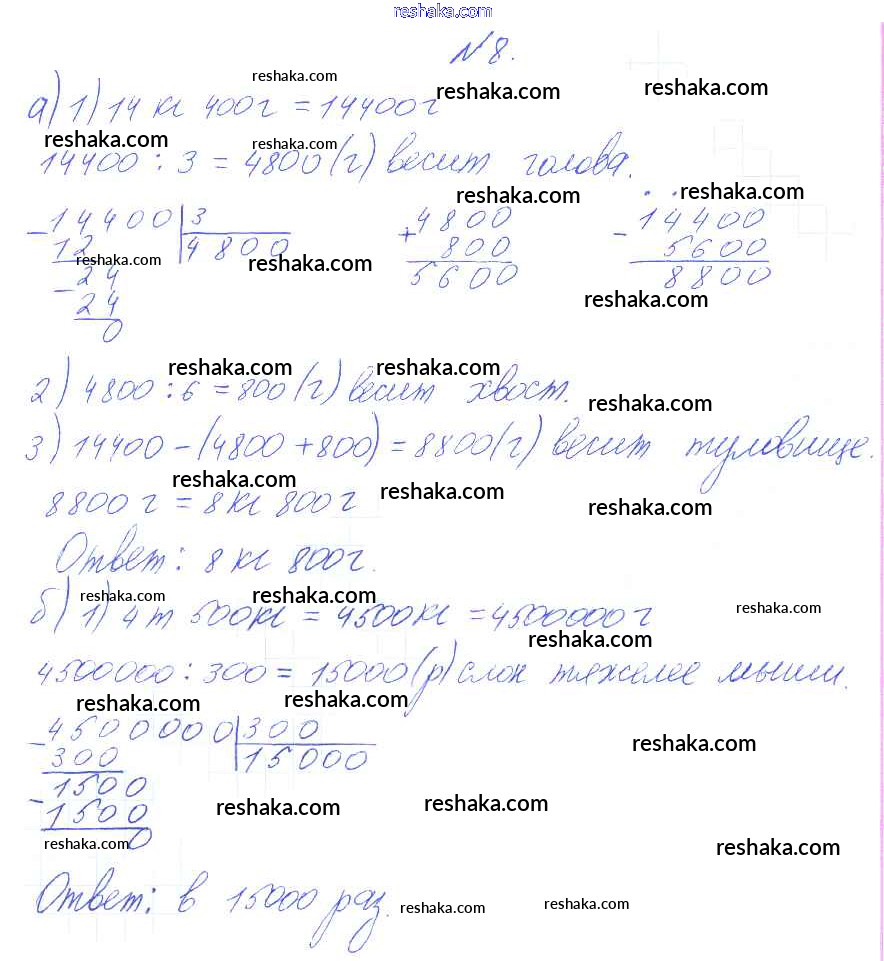 reshaka.com
№8.
reshaka.com
а) 1) 14 кг 400 г = 14400 г
reshaka.com reshaka.com
reshaka.com reshaka.com
14400 : 3 = 4800 (г) весит голова.
reshaka.com reshaka.com
14400 3 4800 14400
12 4800 + 800 - 5600
reshaka.com reshaka.com
- 24 5600 8800
24 reshaka.com
0
reshaka.com reshaka.com
2) 4800 : 6 = 800 (г) весит хвост.
reshaka.com
3) 14400 - (4800 + 800) = 8800 (г) весит туловище.
reshaka.com reshaka.com
8800 г = 8 кг 800 г
reshaka.com
Ответ: 8 кг 800 г.
reshaka.com reshaka.com reshaka.com
б) 1) 4 т 500 кг = 4500 кг = 4500000 г
reshaka.com
4500000 : 300 = 15000 (р) слон тяжелее мыши.
reshaka.com reshaka.com
- 4500000 300
300 15000
reshaka.com
- 1500
1500
reshaka.com reshaka.com
0
reshaka.com reshaka.com
Ответ: в 15000 раз.
reshaka.com reshaka.com